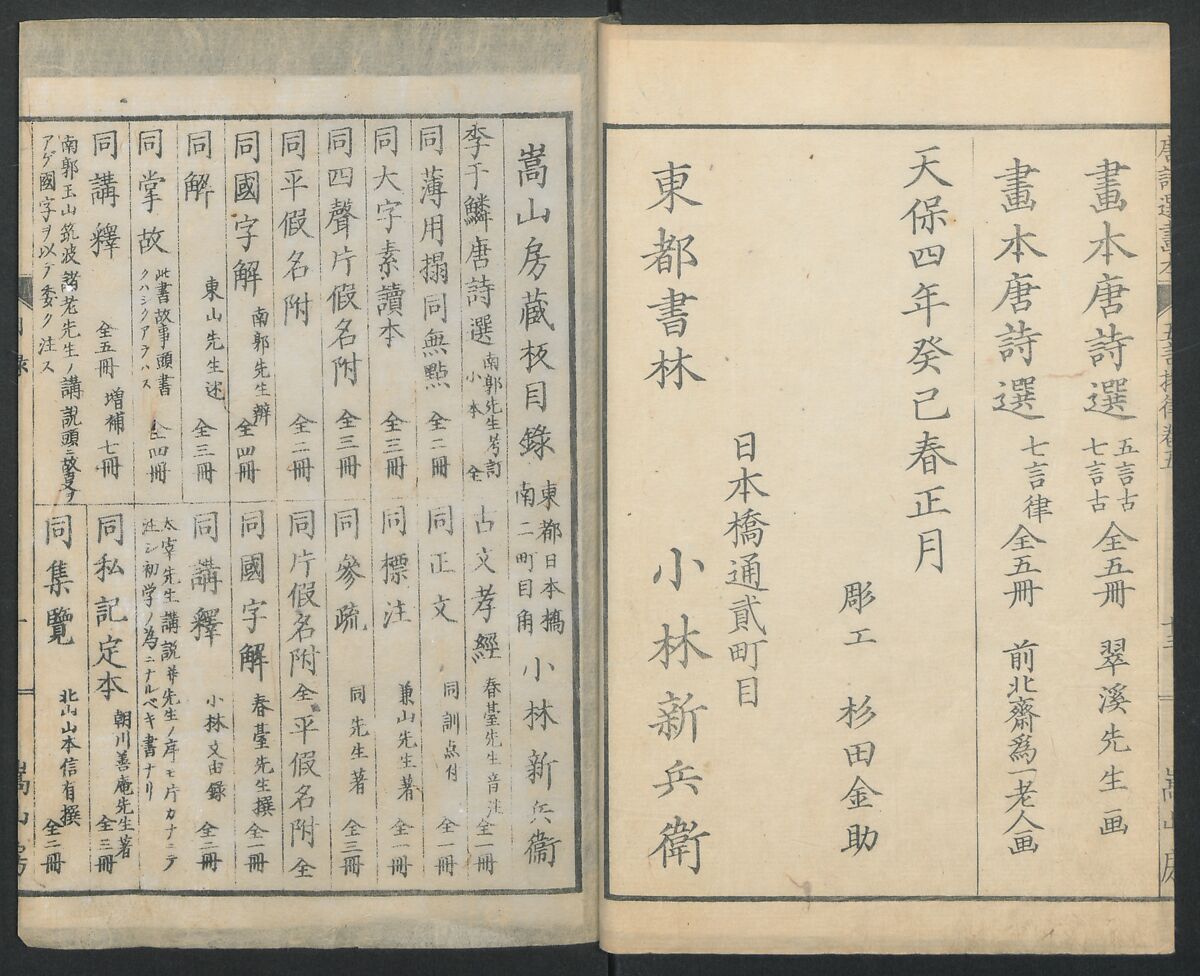 畫本唐詩選 五言古 七言古 全五冊 翠溪先生画
畫本唐詩選 七言律 全五冊 前北齋爲一老人画
天保四年癸巳春正月
彫工 杉田金助
日本橋通貳町目
東都書林 小林新兵衛
嵩山房蔵板目錄 東都日本橋 南二町目角 小林新兵衞
李于鱗唐詩選 南郭先生考訂 小本 全
同薄用搨同無點 全二冊
同大字素讀本 全二冊
同四聲片假名附 全三冊
同平假名附 全二冊
同國字解 南郭先生辨 全四冊
同解 東山先生述 全三冊
同掌故 此書故事ヲ頭書 クハシクアラハス 全四冊
同講釋 全五冊 增補七冊
南郭玉山筑波諸老先生ノ講説頭ニ故叓ヲ
アゲ國字ヲ以テ委ク注ス
古文孝經 春臺先生音注 全一冊
同正文 同訓点付 全一冊
同標注 兼山先生著 全一冊
同參疏 同先生著 全三冊
同片假名附 全 平假名附 全
同國字解 春臺先生撰 全一冊
同講釋 小林文由録 全二冊
太宰先生講説并先生ノ序モ片カナニテ
注シ初学ノ為ニナルベキ書ナリ
同私記定本 朝川善庵先生著 全三冊
同集覽 北山山本信有撰 全二冊